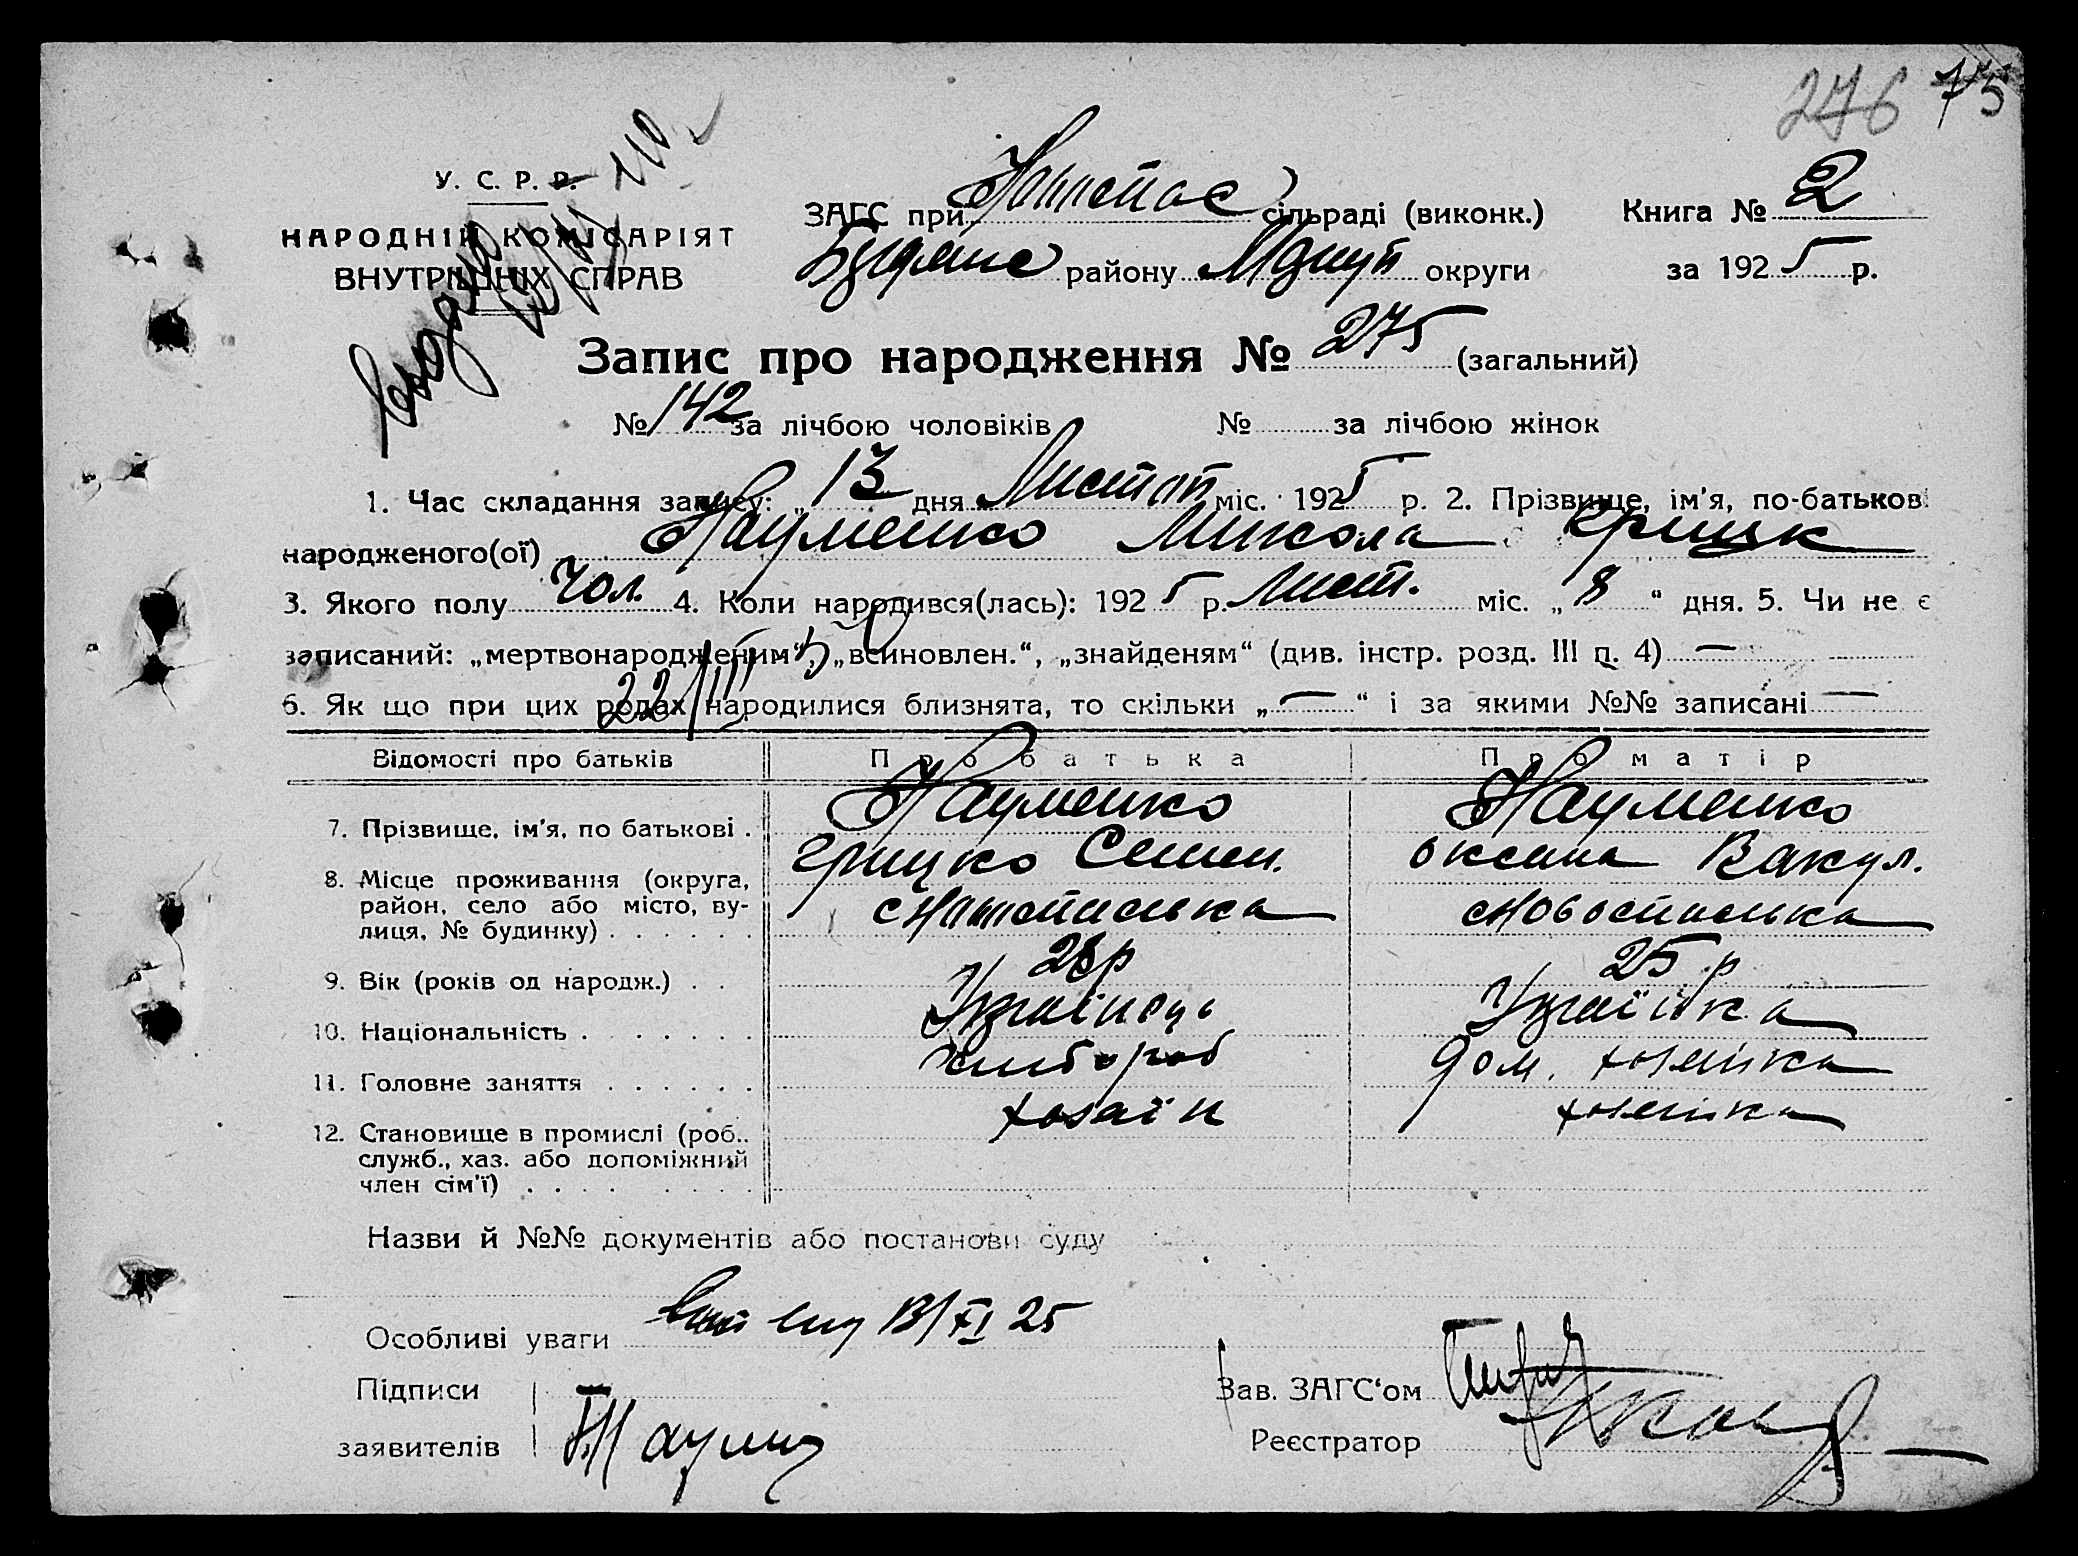 276 75
У. С. Р. Р.
НАРОДНІЙ КОМІСАРІЯТ
ВНУТРІШНІХ СПРАВ
ЗАГС при сільраді (виконк.) Книга № 2
району округи за 1925 р.
Запис про народження № 275 (загальний)
№ 142 за лічбою чоловіків № за лічбою жінок
1. Час складання запису: „ 13 дня Листоп міс. 1925 р. 2. Прізвище, ім'я, по-батькові
народженого(ої) Науменко Микола Грицьк
3. Якого полу Чол. 4. Коли народився(лась): 1925 р. Лист. міс. „ 8 “ дня. 5. Чи не є
записаний: „мертвонародженим“, „всиновлен.“, „знайденям“ (див. інстр. розд. III п. 4) —
6. Як що при цих родах народилися близнята, то скільки „ — “ і за якими №№ записані —
22/III
Відомості про батьків Про батька Про матір
7. Прізвище, ім'я, по батькові . Науменко Науменко
Грицько Семен. Оксана Вакул.
8. Місце проживання (округа,
район, село або місто, ву-
лиця, № будинку) . . . . . .
9. Вік (років од народж.) . . 28р 25 р
10. Національність . . . . . . Українець Українка
11. Головне заняття . . . . . . хлібороб дом. хозяйка
12. Становище в промислі (роб.. хозаїн хозяйка
служб., хаз. або допоміжний
член сім'ї) . . . . . . . .
Назви й №№ документів або постанови суду
Особливі уваги 13/XI 25
Підписи
заявителів Наумен
Зав. ЗАГС‘ом
Реєстратор